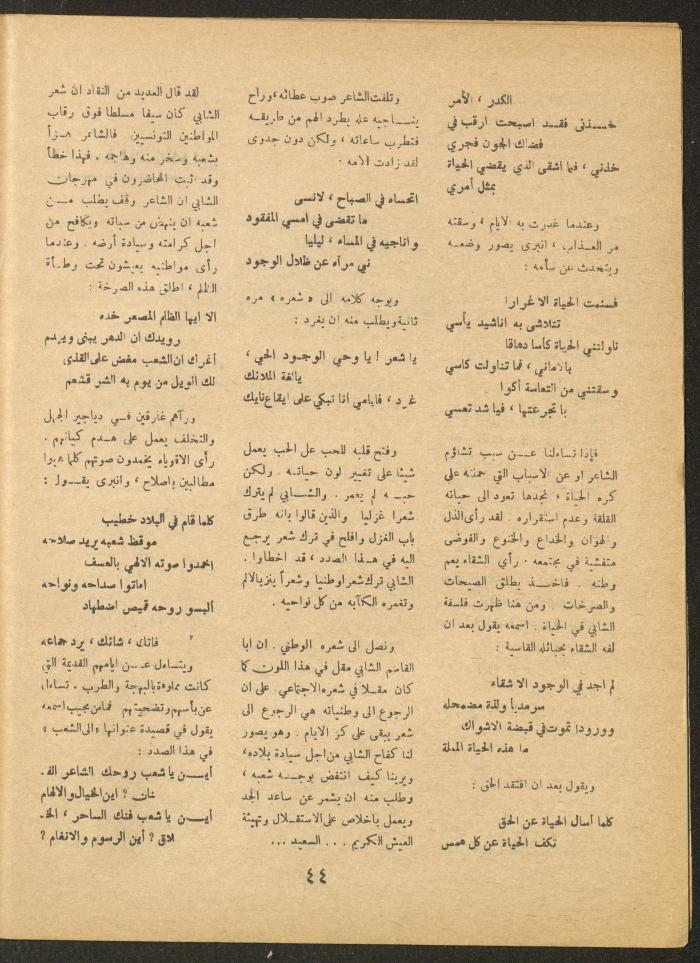 الكدر ، الأمر
خذني فقد اصبحت ارقب في
فضاك الجون فجري
خذني ، فما اشقى الذي يقضي الحياة
بمثل أمري
وعندما غدرت به الايام ، وسقته
مر العذاب ، انبرى يصور وضعه
ويتحدث عن سأمه :
فسئمت الحياة الا غرارا
تتلاشى به اناشيد يأسي
ناولتني الحياة كأسا دهاقا
بالاماني ، فما تناولت كاسي
وسقتني من التعاسة أكوا
با تجرعتها ، فيا شد تعسي
فإذا تساءلنا عن سبب تشاؤم
الشاعر او عن الاسباب التي حملته على
كره الحياة ، نجدها تعود الى حياته
القلقة وعدم استقراره . لقد رأى الذل
والهوان والخداع والخنوع والفوضى
متفشية في مجتمعه . رأي الشقاء يعم
وطنه . فاخذ يطلق الصيحات
والصرخات . ومن هنا ظهرت فلسفة
الشابي في الحياة . اسمعه يقول بعد ان
لفه الشقاء بحبائله القاسية :
لم اجد في الوجود الا شقاء
سرمديا ولذة مضمحله
وورودا تموت في قبضة الاشواك
ما هذه الحياة المملة
ويقول بعد ان افتقد الحق :
كلما أسال الحياة عن الحق
تكف الحياة عن كل همس
وتلفت الشاعر صوب عطائه ، وراح
يناجيه عله يطرد الهم من طريقه
فتطرب ساعاته ، ولكن دون جدوى
لقد زادت آلامه .
اتحساه في الصباح ، لانسى
ما تقضى في امسي المفقود
واناجيه في المساء ، ليلهيا
ني مرآه عن ظلال الوجود
ويوجه كلامه الى « شعره » مره
ثانية ويطلب منه ان يغرد :
يا شعر ! يا وحي الوجود الحي ،
يالغة الملائك
غرد ، فايامي انا تبكي على ايقاع نايك
وفتح قلبه للحب عل الحب يعمل
شيئا على تغيير لون حياته . ولكن
حبه لم يعمر . والشابي لم يترك
شعرا غزليا والذين قالوا بانه طرق
باب الغزل وافلح في ترك شعر يرجع
اليه في هذا الصدد ، قد اخطأوا .
الشابي ترك شعرا وطنيا وشعرا ينز بالالم
وتغمره الكآبه من كل نواحيه .
ونصل الى شعره الوطني . ان ابا
القاسم الشابي مقل في هذا اللون كما
كان مقلا في شعره الاجتماعي على ان
الرجوع الى وطنياته هي الرجوع الى
شعر يبقى على كر الايام . وهو يصور
لنا كفاح الشابي من اجل سيادة بلاده ،
ويرينا كيف انتفض بوجه شعبه ،
وطلب منه ان يشمر عن ساعد الجد
ويعمل باخلاص على الاستقلال وتهيئة
العيش الكريم . . . السعيد ...
لقد قال العديد من النقاد ان شعر
الشابي كان سيفا مسلطا فوق رقاب
المواطنين التونسيين فالشاعر هزأ
بشعبه وسخر منه وهاجمه . فهذا خطأ
وقد اثبت المحاضرون في مهرجان
الشابي ان الشاعر وقف يطلب من
شعبه ان ينهض من سباته ويكافح من
اجل كرامته وسيادة أرضه . وعندما
رأى مواطنيه يعيشون تحت وطأة
الظلم ، اطلق هذه الصرخة :
الا ايها الظلم المصعر خده
رويدك ان الدهر يبنى ويهدم
أغرك ان الشعب مغض على القذى
لك الويل من يوم به الشر قشعم
ورآهم غارقين في دياجير الجهل
والتخلف يعمل على هدم كيانهم .
رأى الاقوياء يخمدون صوتهم كلما هبوا
مطالبين باصلاح ، وانبرى يقول :
كلما قام في البلاد خطيب
موقظ شعبه يريد صلاحه
اخمدوا صوته الالهي بالعسف
اماتوا صداحه ونواحه
البسو روحه قميص اضطهاد
فاتك ، شائك ، يرد جماعه
ويتساءل عن ايامهم القديمة التي
كانت مملوءة بالبهجة والطرب . تساءل
عن بأسهم وتضحيتهم فما من مجيب اسمعه
يقول في قصيدة عنوانها « الى الشعب »
في هذا الصدد :
أين يا شعب روحك الشاعر الفـ
ـنان ؟ اين الخيال والالهام
أين يا شعب فنك الساحر ، الخـ
ـلاق ؟ أين الرسوم والانغام ؟
٤٤